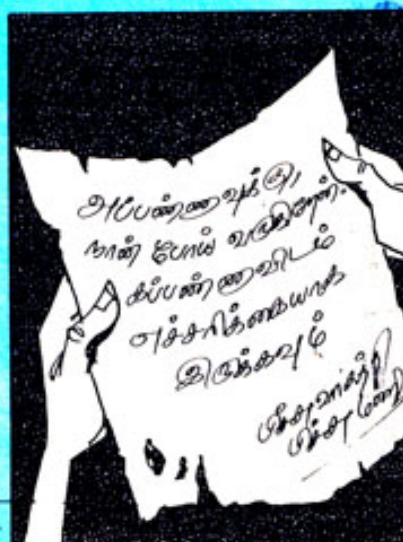 அப்பண்ணவுக்கு,
நான் போய் வருகிறேன்.
கப்பண்ணவிடம்
எச்சரிக்கையாக
இருக்கவும்
பிச்சுமணி